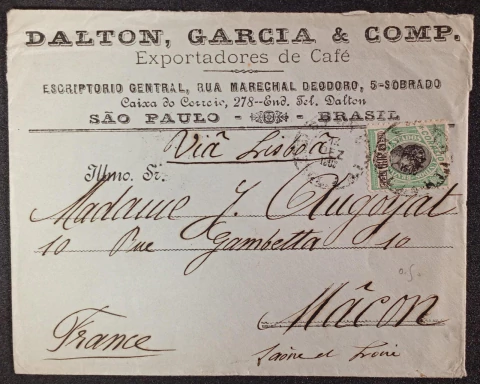 DALTON, GARCIA & COMP.
Exportadores de Café
ESCRIPTORIO CENTRAL, RUA MARECHAL DEODORO, 5-SOBRADO
Caixa do Correio, 278--End. Tel. Dalton
SÃO PAULO - BRASIL
Viâ Lisboâ
Illmo. Sr.
Madame J. Augoyat
10 Rue Gambetta 10
Mâcon
Saône et Loire
France